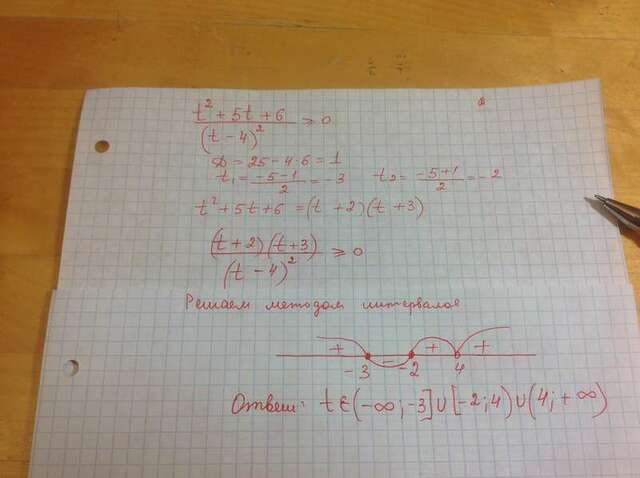 t² + 5t + 6 / (t - 4)² ≥ 0
D = 25 - 4·6 = 1
t₁ = -5-1 / 2 = -3 t₂ = -5+1 / 2 = -2
t² + 5t + 6 = (t + 2)(t + 3)
(t + 2)(t + 3) / (t - 4)² ≥ 0
Решаем методом интервалов
+ - + +
-3 -2 4
Ответ: t ∈ (-∞; -3] ∪ [-2; 4) ∪ (4; +∞)